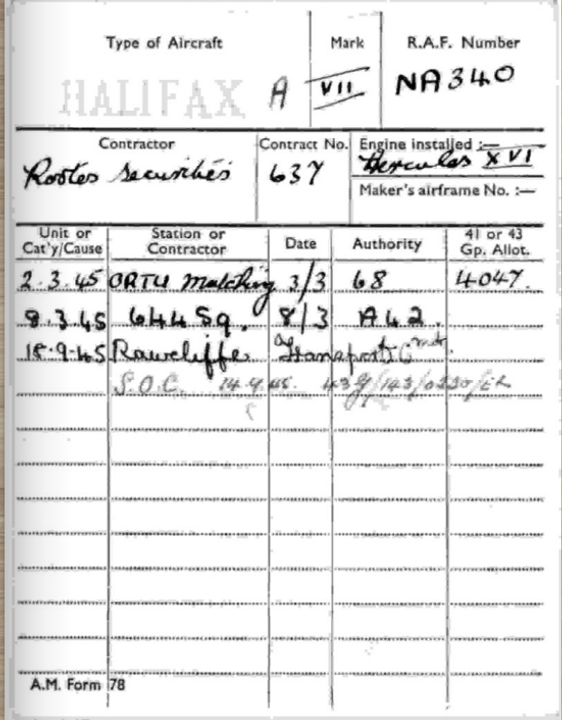 Type of Aircraft Mark R.A.F. Number
HALIFAX A VII NA340
Contractor Contract No. Engine installed :—
Rootes Securities 637 Hercules XVI
Maker's airframe No. :—
Unit or Cat'y/Cause Station or Contractor Date Authority 41 or 43 Gp. Allot.
2.3.45 ORTU Matching 3/3 68 4047.
8.3.45 644 Sq. 8/3 A42.
18.9.45 Rawcliffe Transport C
S.O.C.
A.M. Form 78